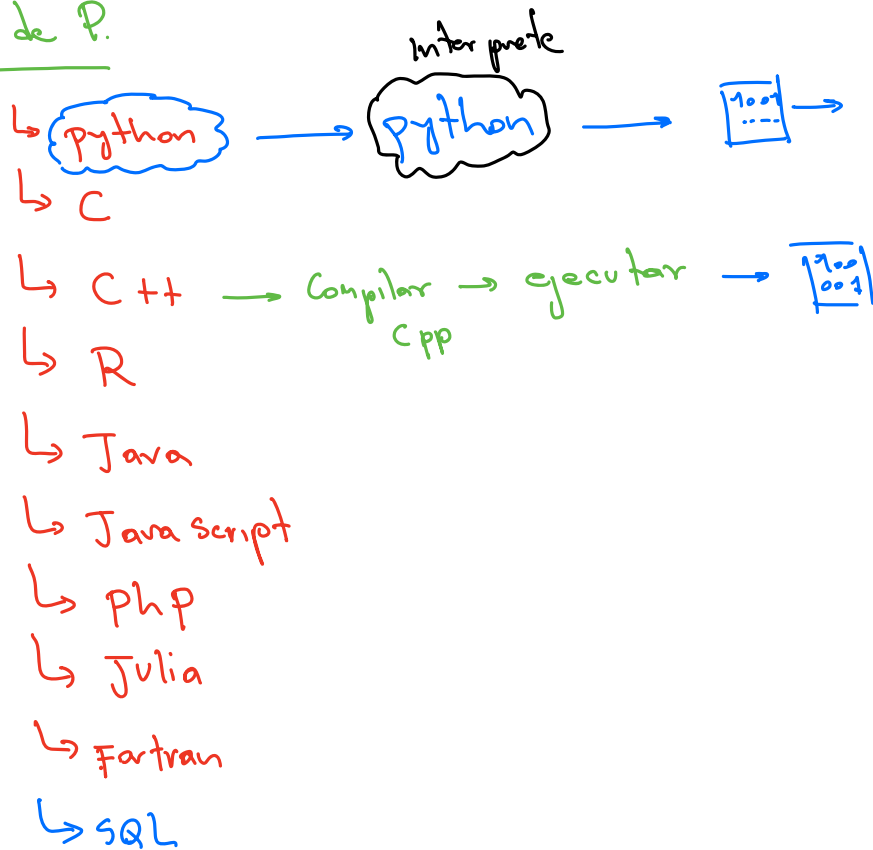 de P.
Interprete
python python 1001
C
C++ Compilar ejecutar 100
001
cpp
R
Java
Java script
php
Julia
Fortran
SQL